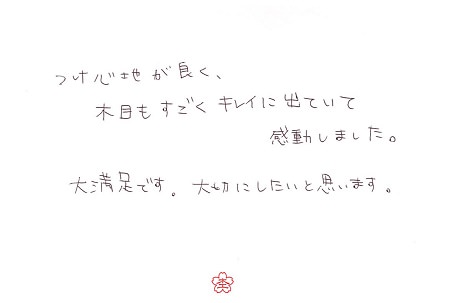 つけ心地が良く、
木目もすごくキレイに出ていて
感動しました。
大満足です。大切にしたいと思います。